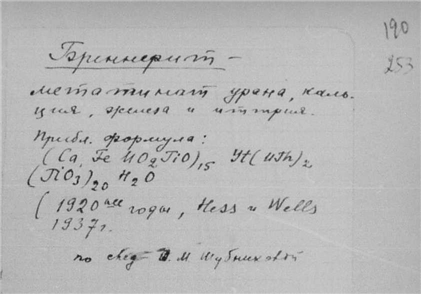 190
253
Бреннерит –
метатитанат урана, каль-
ция, железа и иттрия.
Прибл. формула:
(Ca, Fe UO2TiO)15 Yt(UTh)2
(TiO3)20 H2O
(1920ые годы, Hess и Wells
1937г.
по О. М. Шубниковой